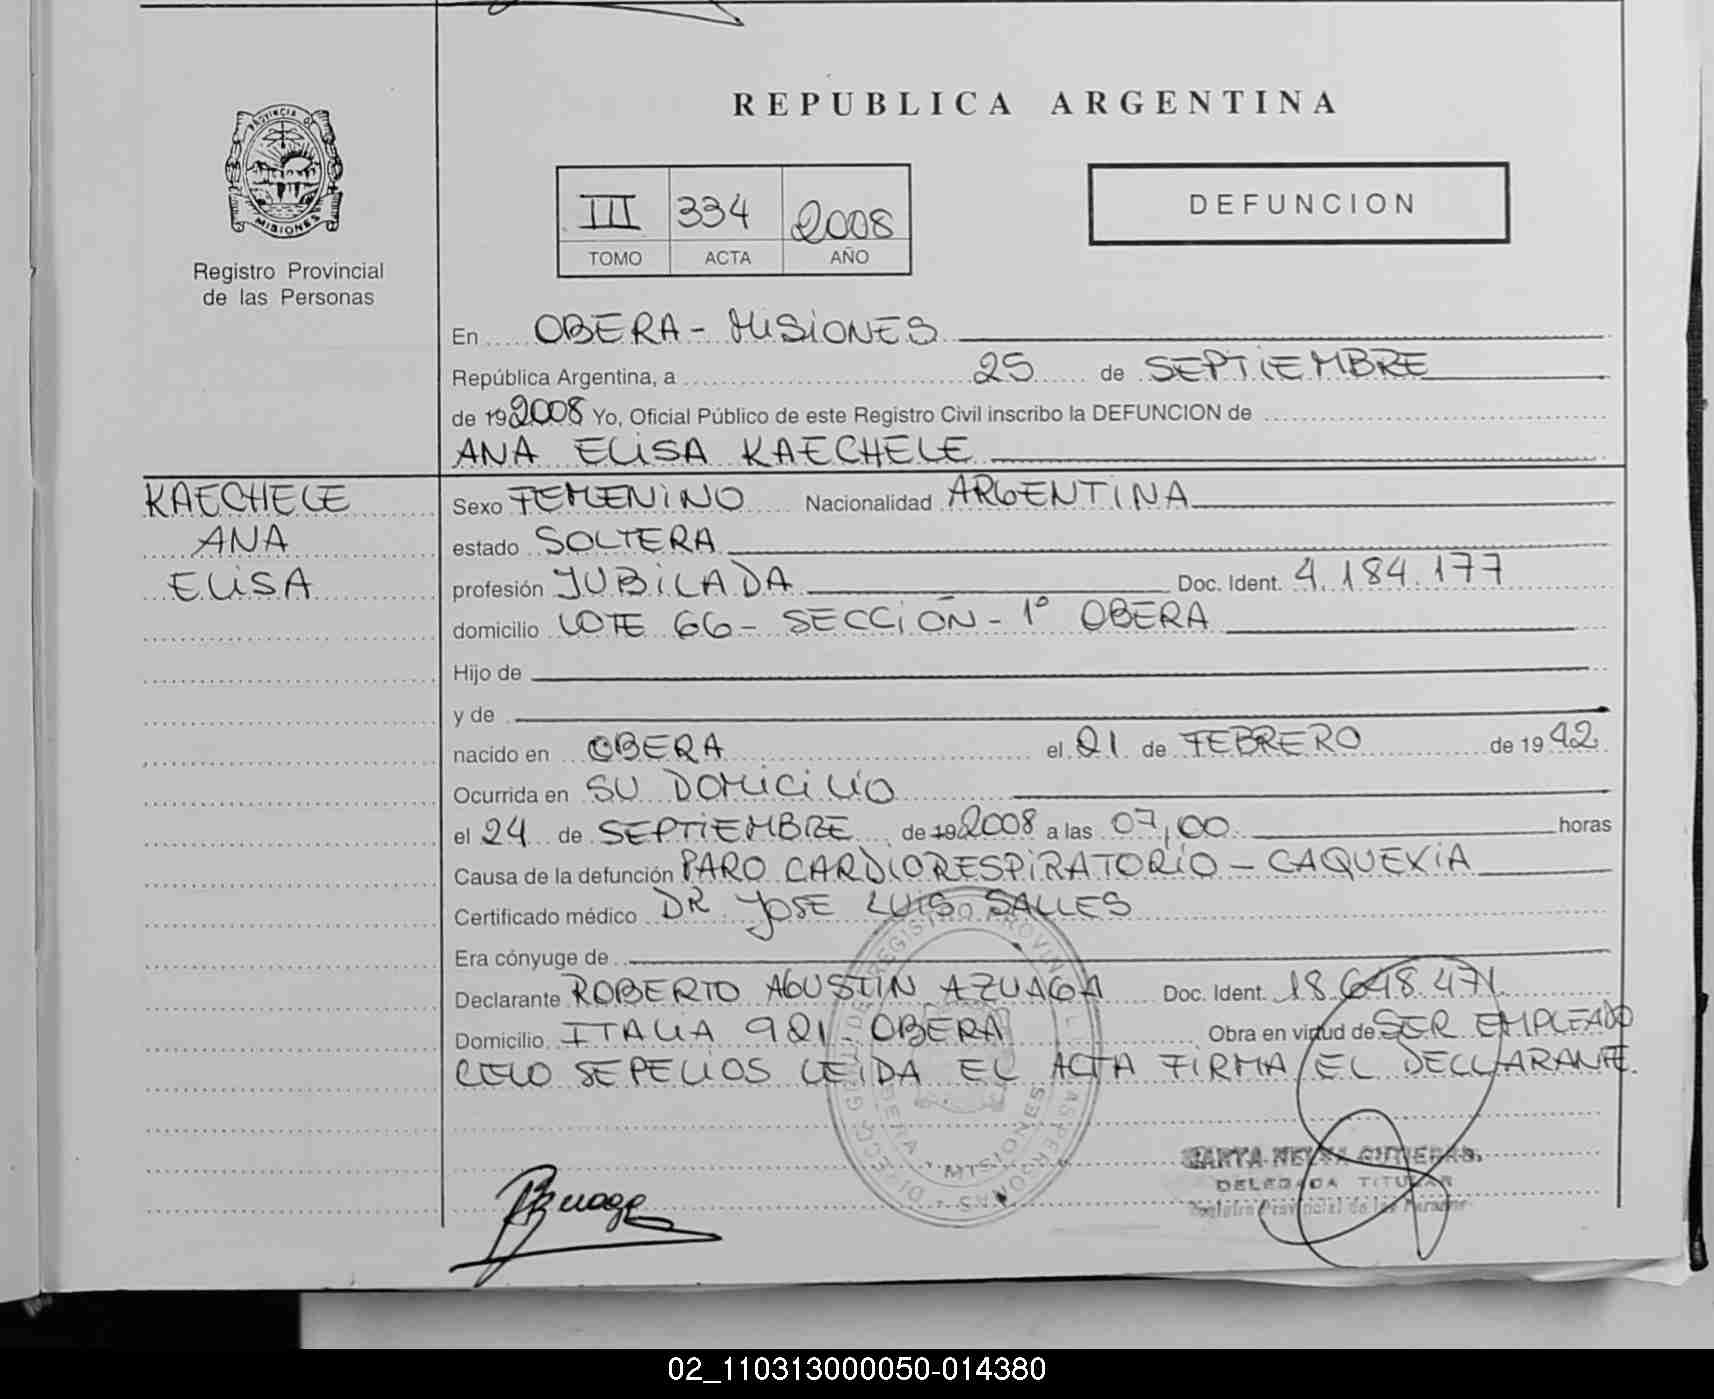 REPUBLICA ARGENTINA
PROVINCIA DE
MISIONES
Registro Provincial
de las Personas
III 334 2008
TOMO ACTA AÑO
DEFUNCION
En OBERA - MISIONES
República Argentina, a 25 de SEPTIEMBRE
de 19 2008 Yo, Oficial Público de este Registro Civil inscribo la DEFUNCION de
ANA ELISA KAECHELE
KAECHELE
ANA
ELISA
Sexo FEMENINO Nacionalidad ARGENTINA
estado SOLTERA
profesión JUBILADA Doc. Ident. 4.184.177
domicilio LOTE 66 - SECCIÓN - 1° OBERA
Hijo de
y de
nacido en OBERA el 21 de FEBRERO de 19 42
Ocurrida en SU DOMICILIO
el 24 de SEPTIEMBRE de 19 2008 a las 07,00 horas
Causa de la defunción PARO CARDIORESPIRATORIO - CAQUEXIA
Certificado médico DR JOSE LUIS SALLES
Era cónyuge de
Declarante ROBERTO AGUSTIN AZUAGA Doc. Ident. 18.648.471
Domicilio ITALIA 921 - OBERA Obra en virtud de SER EMPLEADO
CELO SEPELIOS LEIDA EL ACTA FIRMA EL DECLARANTE.
MISIONES
DELEGADA TITULAR
Registro Provincial de las Personas
02_110313000050-014380